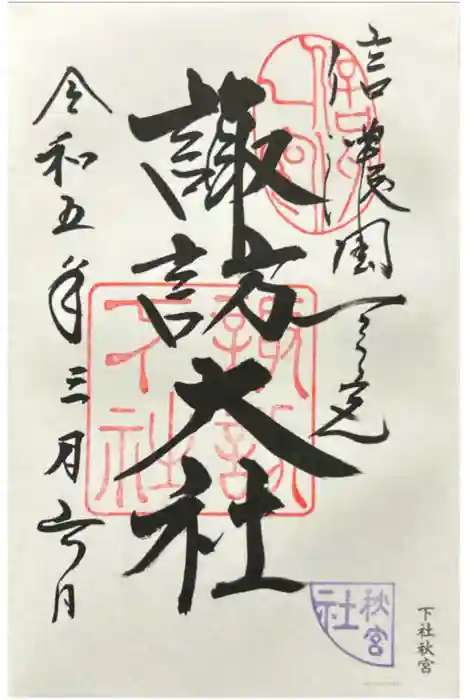 信濃國一之宮
諏訪大社
令和五年三月六日
信濃國一之宮
諏訪下社
秋宮社
下社秋宮